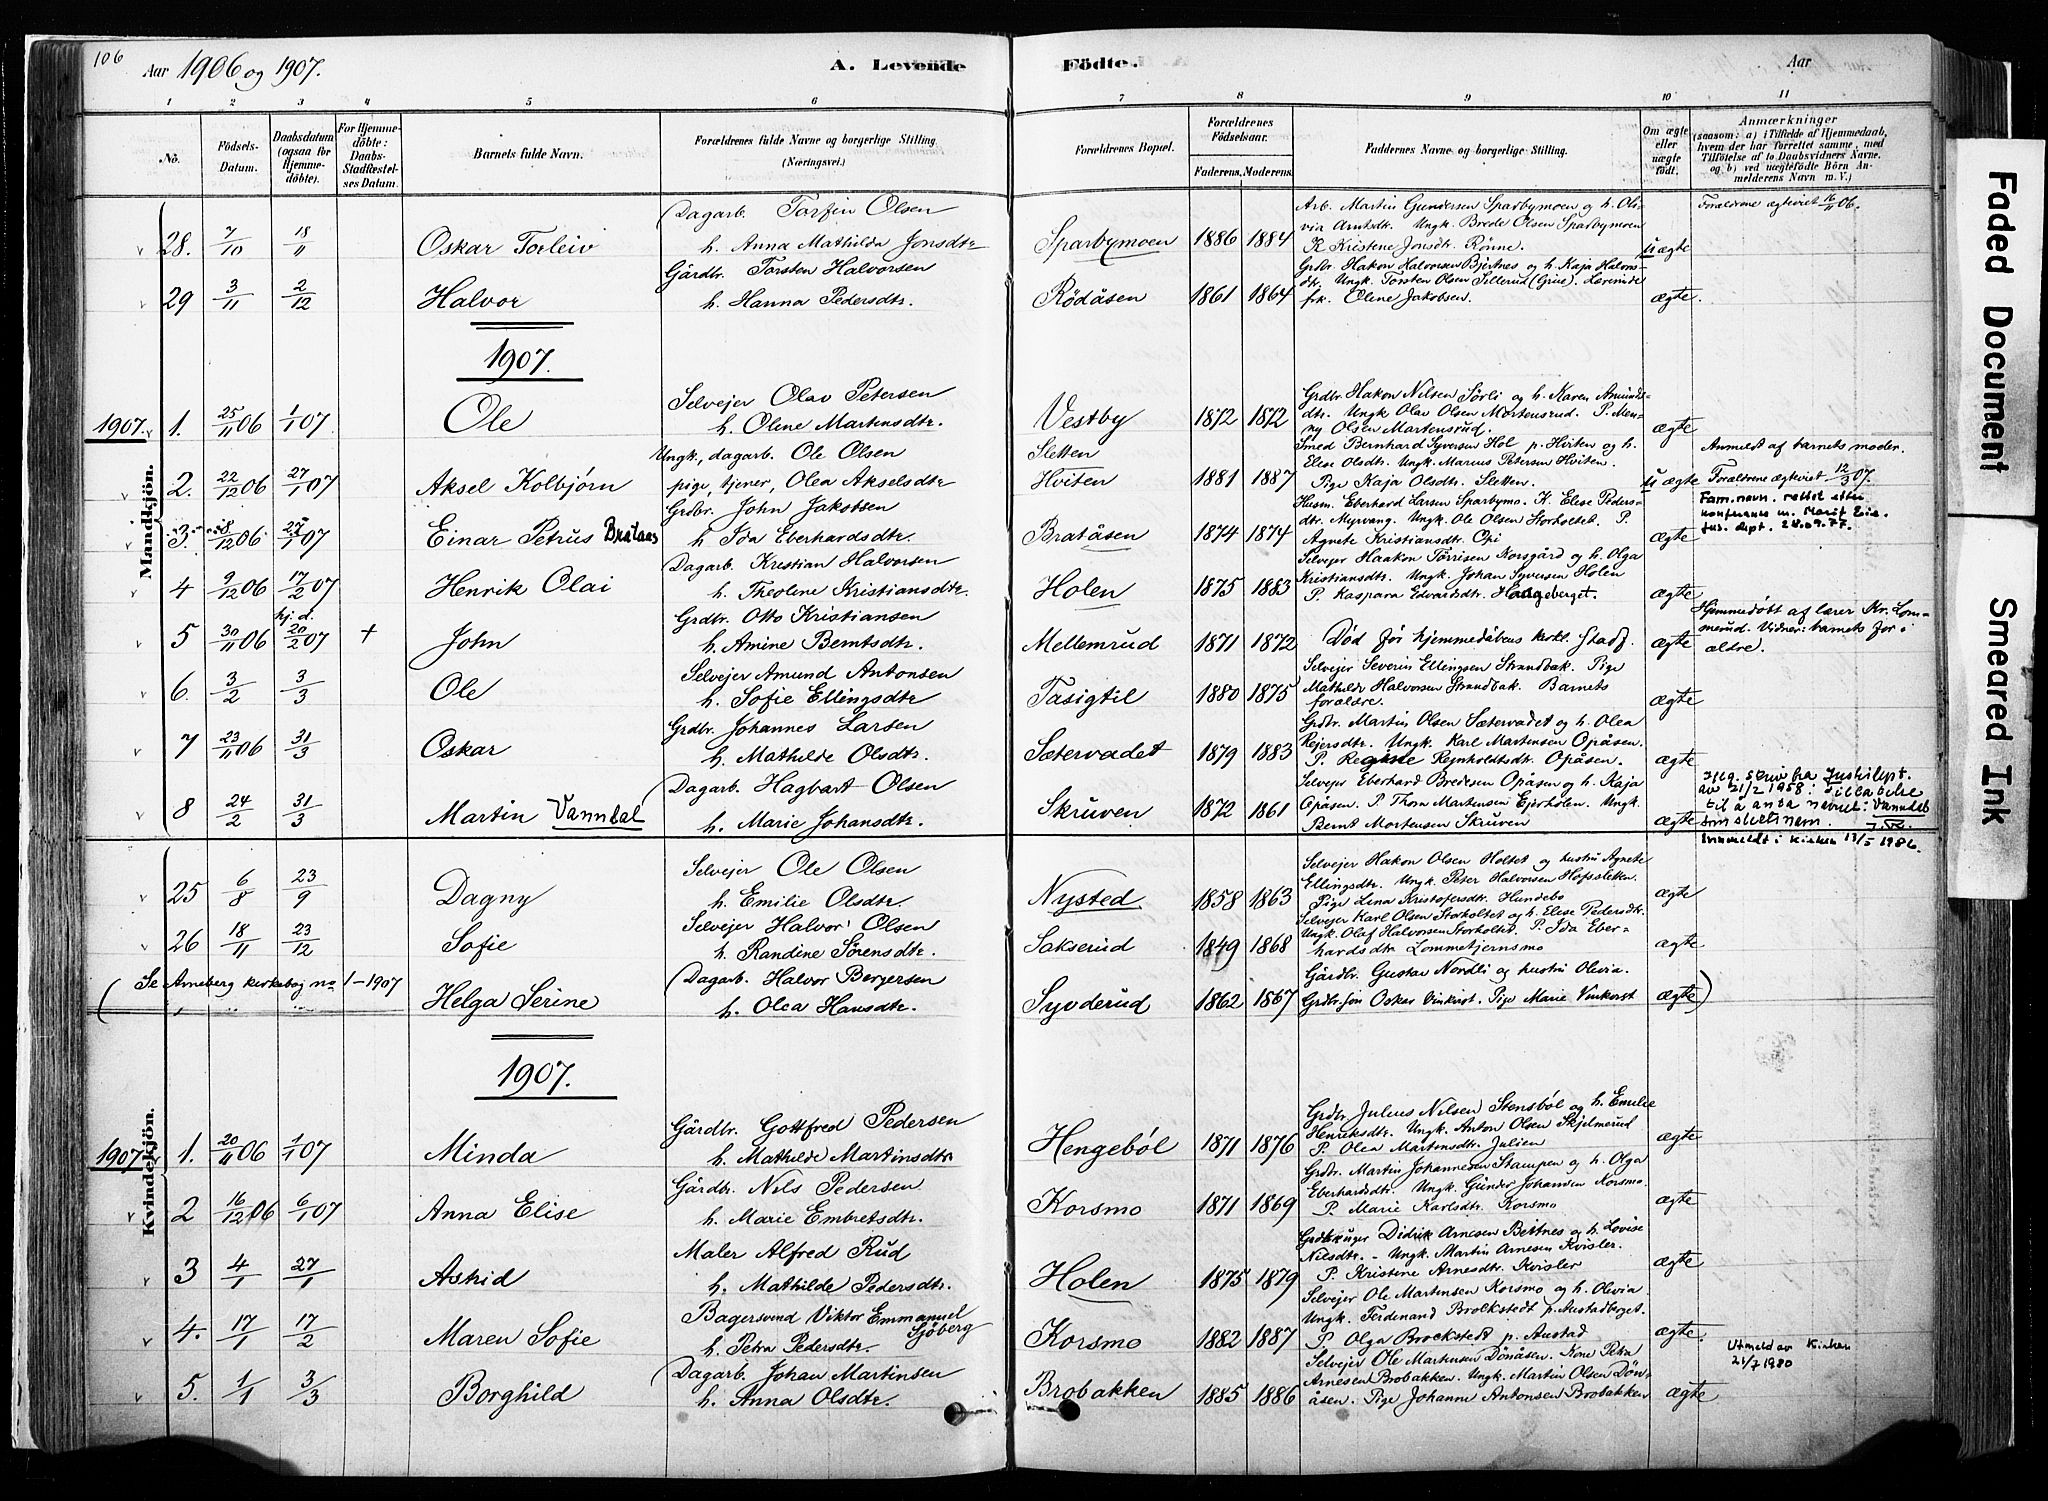 106
Aar 1906 og 1907.
A. Levende Födte.
Aar
1 2 3 4 5 6 7 8 9 10 11
No.
Födsels-Datum.
Daabsdatum (ogsaa for Hjemme-döbte).
For Hjemme-döbte: Daabs-Stadfæstel-ses Datum.
Barnets fulde Navn.
Forældrenes fulde Navne og borgerlige Stilling. (Næringsvei.)
Forældrenes Bopæl.
Forældrenes Födselsaar.
Faderens. Moderens.
Faddernes Navne og borgerlige Stilling.
Om ægte eller uægte födt.
Anmærkninger
(saasom: a) i Tilfælde af Hjemmedaab, hvem der har forrettet samme, med Tilföielse af to Daabsvidners Navne, og b) ved uægtefödte Börn An-melderens Navn m. V.)
Mandkjön.
28. 7/10 18/11 Oskar Torleiv
Dagarb. Torfin Olsen
h. Anna Mathilda Jonsdtr
Sparbymoen 1886 1884
Arb. Martin Gundersen Sparbymoen og h. Oli-
via Arntsdt. Ungk. Brede Olsen Sparbymoen
K Kristene Jonsdt. Rønne.
uægte
Forældrene ægteviet 16/11 06.
29 3/11 2/12 Halvor
Gårdbr. Torsten Halvorsen
h. Hanna Pedersdtr.
Rödåsen 1861 1864
Grdbr. Hakon Halvorsen Bjertnes og h. Kaja Halvors-
dtr. Ungk. Torsten Olsen Sillerud (Grue). Lærerinde
frk. Oline Jakobsen.
ægte.
1907.
1907. 1. 25/11 06 1/1 07 Ole
Selvejer Olav Petersen
h. Oline Martinsdtr.
Vestby 1872 1872
Grdbr Hakon Nilsen Sörli og h. Karen Amunds-
dtr. Ungk Olav Olsen Mortensrud. P. Men-
ny Olsen Martensrud.
ægte
2. 22/12 06 27/1 07 Aksel Kolbjørn
Ungk., dagarb. Ole Olsen
pige, tjener, Olea Akselsdtr
Sletten
Hviten 1881 1887
Smed Bernhard Syversen Hol p. Hviten og h.
Elise Olsdtr. Ungk. Marius Petersen Hviten.
Pige Kaja Olsdtr. Sletten.
uægte
Anmeldt af barnets moder.
Forældrene ægteviet 12/3 07.
3. 8/12 06 27/1 07 Einar Petrus Brataas
Grdbr. John Jakobsen
h Ida Eberhardsdtr.
Bratåsen 1874 1874
Husm. Eberhard Larsen Sparbymo. K. Elise Peders-
dtr. Myrvang. Ungk. Ole Olsen Storholtet. P.
Agnete Kristiansdtr. Opi
ægte
Fam.navn. rettet etter
konferanse m. Marit Eie
Jus. dept. 28.09.77.
4 9/12 06 17/2 07 Henrik Olai
Dagarb. Kristian Halvorsen
h. Theoline Kristiansdtr.
Holen 1875 1883
Selvejer Haakon Törrisen Korsgård og h. Olga
Kristiansdtr. Ungk. Johan Syversen Holen
P. Kaspara Edvardsdtr. Haugeberget.
ægte
hj.d.
5 30/11 06 20/2 07 + John
Grdbr. Otto Kristiansen
h. Amine Berntsdtr.
Mellemrud 1871 1872
Död før hjemmedåbens kirkl. Stadf.
ægte
Hjemmedøbt af lærer Kr. Lom-
merud. Vidner: barnets for-
ældre.
6. 3/2 3/3 Ole
Selvejer Amund Antonsen
h. Sofie Ellingsdtr
Tasigtil 1880 1875
Selvejer Severin Ellingsen Strandbak. Pige
Mathilde Halvorsen Strandbak. Barnets
forældre.
ægte
7 23/11 06 31/3 Oskar
Grdbr. Johannes Larsen
h. Mathilde Olsdtr.
Sætervadet 1879 1883
Grdbr. Martin Olsen Sætervadet og h. Olea
Rejersdtr. Ungk. Karl Martensen Opåsen.
P. Regine Rejnholdtsdtr. Opåsen.
ægte
8 24/2 31/3 Martin Vanndal
Dagarb. Hagbart Olsen
h. Marie Johansdtr.
Skruven 1872 1861
Selvejer Eberhard Bredesen Opåsen og h. Kaja
Opåsen. P Thora Martensen Ejerholen. Ungk.
Bernt Mortensen Skruven
ægte
Iflg. skriv fra Justisdept.
av 21/2 1958: tillatelse
til å anta navnet: Vanndal
som slektsnavn.
Innmeldt i kirken 11/5 1986.
25 6/8 23/9 Dagny
Selvejer Ole Olsen
h. Emilie Olsdtr.
Nysted 1858 1863
Selvejer Hakon Olsen Holtet og hustru Agnete
Ellingsdtr. Ungk. Peter Halvorsen Hofssletten.
Pige Lina Kristofersdtr. Hundebo
ægte
26 18/11 23/12 Sofie
Selvejer Halvor Olsen
h. Randine Sörensdtr.
Sakserud 1849 1868
Selvejer Karl Olsen Storholtet og h. Elise Pedersdtr.
Ungk. Olaf Halvorsen Storholtet. P. Ida Eber-
hardsdtr. Lommetjernsmo
ægte
(Se Arneberg kirkebog no 1 - 1907
Helga Serine
Dagarb. Halvor Bergersen
h. Olea Hansdtr.
Syverud 1862 1867
Gårdbr. Gustav Nordli og hustru Olivia.
Grdbr.søn Oskar Vinkvist. Pige Marie Vinkvist
ægte)
1907.
Kvindekjön.
1907 1. 20/11 06 1/1 07 Minda
Gårdbr. Gottfred Pedersen
h. Mathilde Martinsdtr
Hengeböl 1871 1876
Grdbr. Julius Nilsen Stensböl og h. Emilie
Henriksdtr. Ungk. Anton Olsen Skjelmerud
P. Olea Martinsdtr. Julien
ægte
2 16/12 06 6/1 07 Anna Elise
Gårdbr. Nils Pedersen
h. Marie Embretsdtr.
Korsmo 1871 1869
Grdbr. Martin Johannesen Stampen og h. Olga
Eberhardsdtr. Ungk. Gunder Johansen Korsmo
P. Marie Karlsdtr. Korsmo
ægte
3 4/1 27/1 Astrid
Maler Alfred Rud
h. Mathilde Pedersdtr.
Holen 1875 1879
Grdbruger Didrik Arnesen Bettnes og h. Lovise
Nilsdtr. - Ungk. Martin Arnesen Kvisler.
P. Kristine Arnesdtr. Kvisler
ægte
4. 17/1 17/2 Maren Sofie
Bagersvend Viktor Emmanuel
Sjöberg
h. Petra Pedersdtr.
Korsmo 1882 1887
Selvejer Ole Martensen Korsmo og h. Olivia
Ungk. Ferdinand Brockstedt p. Austadborget.
P. Olga Brockstedt p. Austad
ægte.
Utmeldt av Kirken
21/7 1980
5. 1/1 3/3 Borghild
Dagarb. Johan Martinsen
h. Anna Olsdtr.
Brobakken 1885 1886
Selvejer Ole Martensen Dönåsen. Kone Petra
Arnesen Brobakken. Ungk. Martin Olsen Dön-
åsen. Pige Johanne Antonsen Brobakken
ægte
Faded Document
Smeared Ink